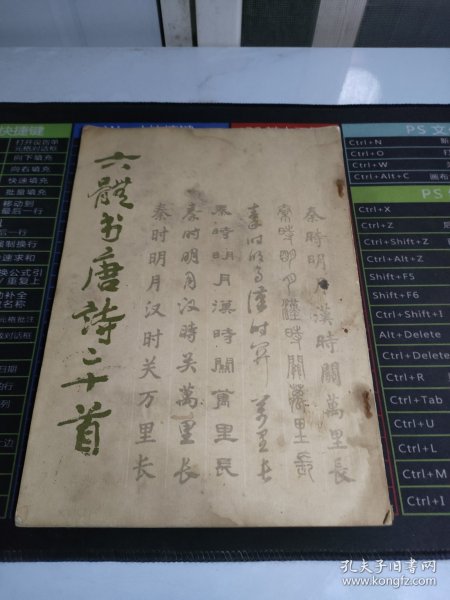 六體书唐詩三十首
秦時明月漢時關萬里長
秦時明月漢時關萬里長
秦时明月漢时関萬里長
秦時明月漢時關萬里長
秦时明月汉時关萬里長
秦时明月汉时关万里长
快捷键
向下填充
向右填充
快速填充
批量填充
移动到
最后一行
强制换行
快速求和
PS 文
Ctrl+N
Ctrl+O
Ctrl+W
Ctrl+Alt+C 画布
PS
Ctrl+X
Ctrl+Z
Ctrl+Shift+Z
Ctrl+Alt+Z
Shift+F5
Shift+F6
Ctrl+Shift+I
Alt+Delete
Ctrl+Delete
Ctrl+R
Ctrl+Tab
Ctrl+U
Ctrl+L
Ctrl+M
Ctrl+I
孔夫子旧书网
www.kongfz.com